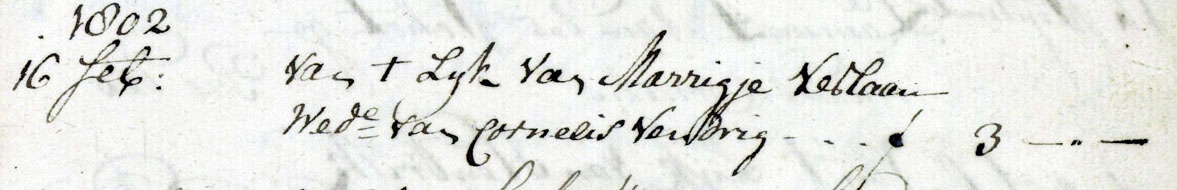 1802
16 feb: van t Lyk van Marrigje Verlaan
Wede van Cornelis Verbrig - . . . f 3 —"—